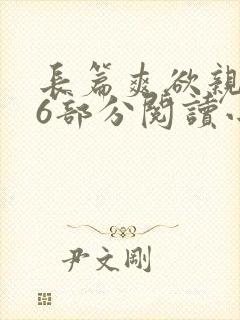 長篇爽欲親
6部分閱讀小
尹文剛